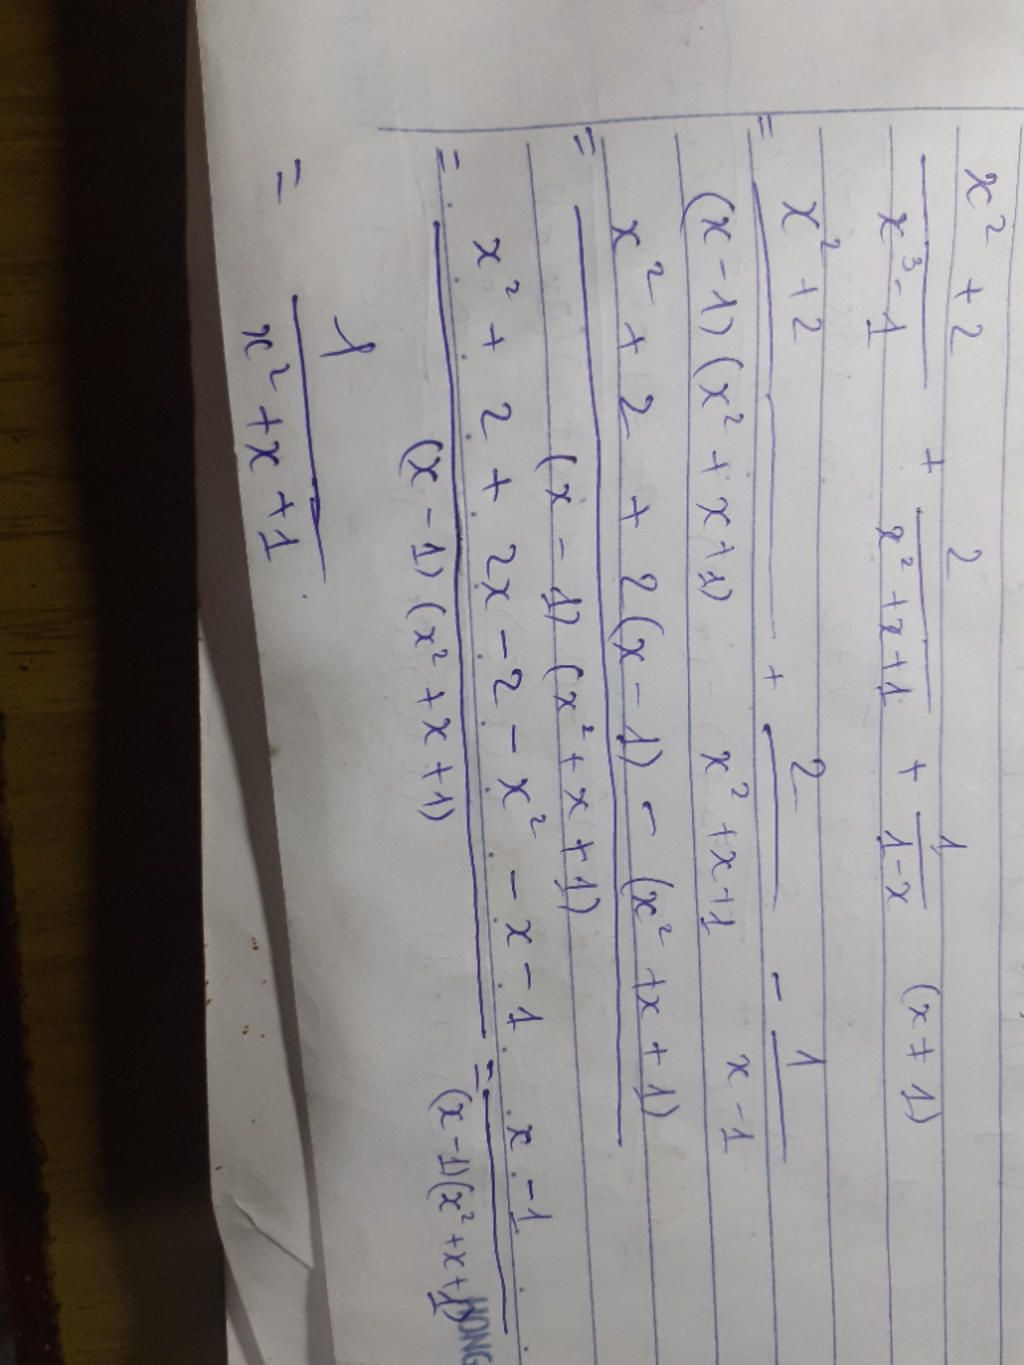 x² + 2 / x³ - 1 + 2 / x² + x + 1 + 1 / 1 - x (x + 1)
= x² + 2 / (x - 1)(x² + x + 1) + 2 / x² + x + 1 - 1 / x - 1
= x² + 2 + 2(x - 1) - (x² + x + 1) / (x - 1)(x² + x + 1)
= x² + 2 + 2x - 2 - x² - x - 1 / (x - 1)(x² + x + 1) = x - 1 / (x - 1)(x² + x + 1)
= 1 / x² + x + 1
HONG